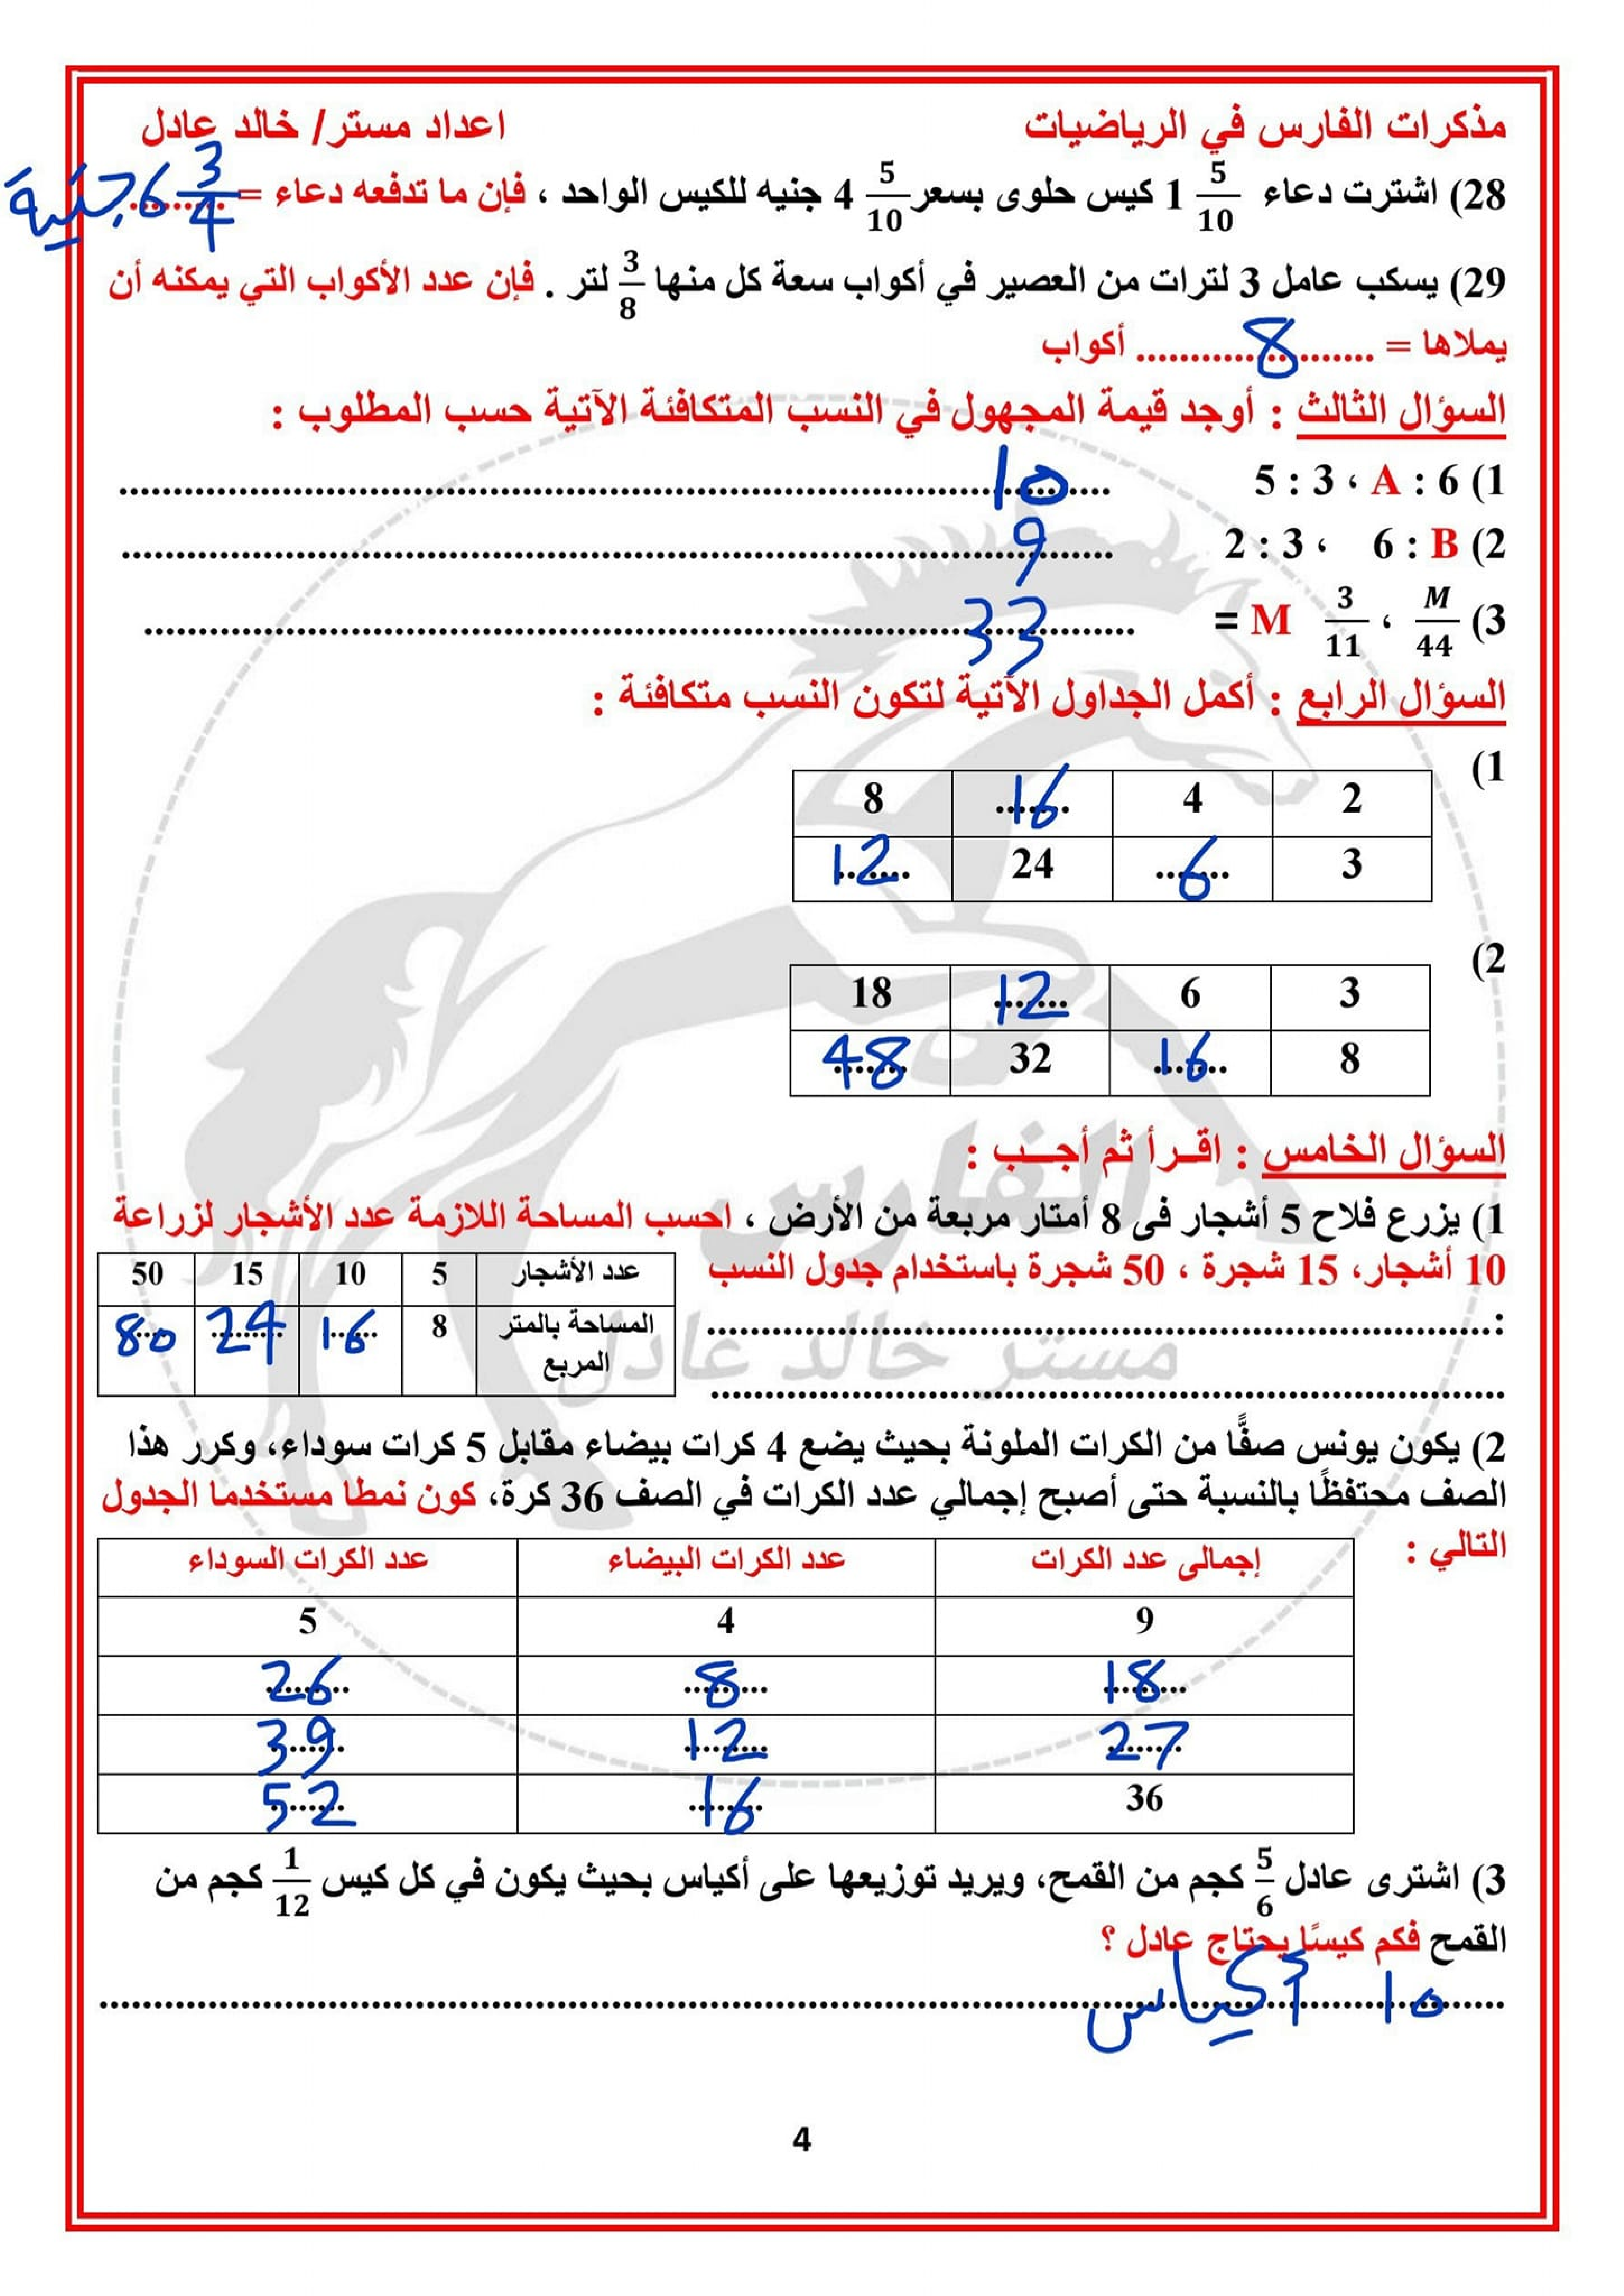 مذكرات الفارس في الرياضيات اعداد مستر/ خالد عادل
28) اشترت دعاء 1 5/10 كيس حلوى بسعر 4 5/10 جنيه للكيس الواحد ، فإن ما تدفعه دعاء = ......... 6 3/4 جنية
29) يسكب عامل 3 لترات من العصير في أكواب سعة كل منها 3/8 لتر . فإن عدد الأكواب التي يمكنه أن
يملاها = ........ 8 ........ أكواب
السؤال الثالث : أوجد قيمة المجهول في النسب المتكافئة الآتية حسب المطلوب :
1) 5 : 3 ، A : 6 ........ 10 ........
2) 2 : 3 ، 6 : B ........ 9 ........
3) M/44 ، 3/11 M = ........ 33 ........
السؤال الرابع : أكمل الجداول الآتية لتكون النسب متكافئة :
1)
2 4 16 8
3 6 24 12
2)
3 6 12 18
8 16 32 48
السؤال الخامس : اقـرأ ثم أجـــب :
1) يزرع فلاح 5 أشجار فى 8 أمتار مربعة من الأرض ، احسب المساحة اللازمة عدد الأشجار لزراعة
10 أشجار، 15 شجرة ، 50 شجرة باستخدام جدول النسب
:........
عدد الأشجار 5 10 15 50
المساحة بالمتر المربع 8 16 24 80
الفارس
مستر خالد عادل
2) يكون يونس صفًّا من الكرات الملونة بحيث يضع 4 كرات بيضاء مقابل 5 كرات سوداء، وكرر هذا
الصف محتفظًا بالنسبة حتى أصبح إجمالي عدد الكرات في الصف 36 كرة، كون نمطا مستخدما الجدول
التالي :
إجمالى عدد الكرات عدد الكرات البيضاء عدد الكرات السوداء
9 4 5
18 8 26
27 12 39
36 16 52
3) اشترى عادل 5/6 كجم من القمح، ويريد توزيعها على أكياس بحيث يكون في كل كيس 1/12 كجم من
القمح فكم كيسًا يحتاج عادل ؟
10 أكياس
4